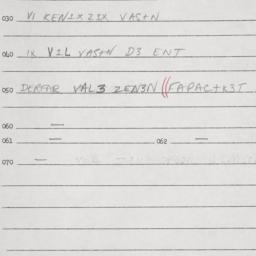 030 VI KENIXZIX VASTN
040 IK VIL VASTN D3 ENT
050 DERFOR VAL3 ZEN3N || FAPACTK3T
060 —
061 — 062 —
070 —